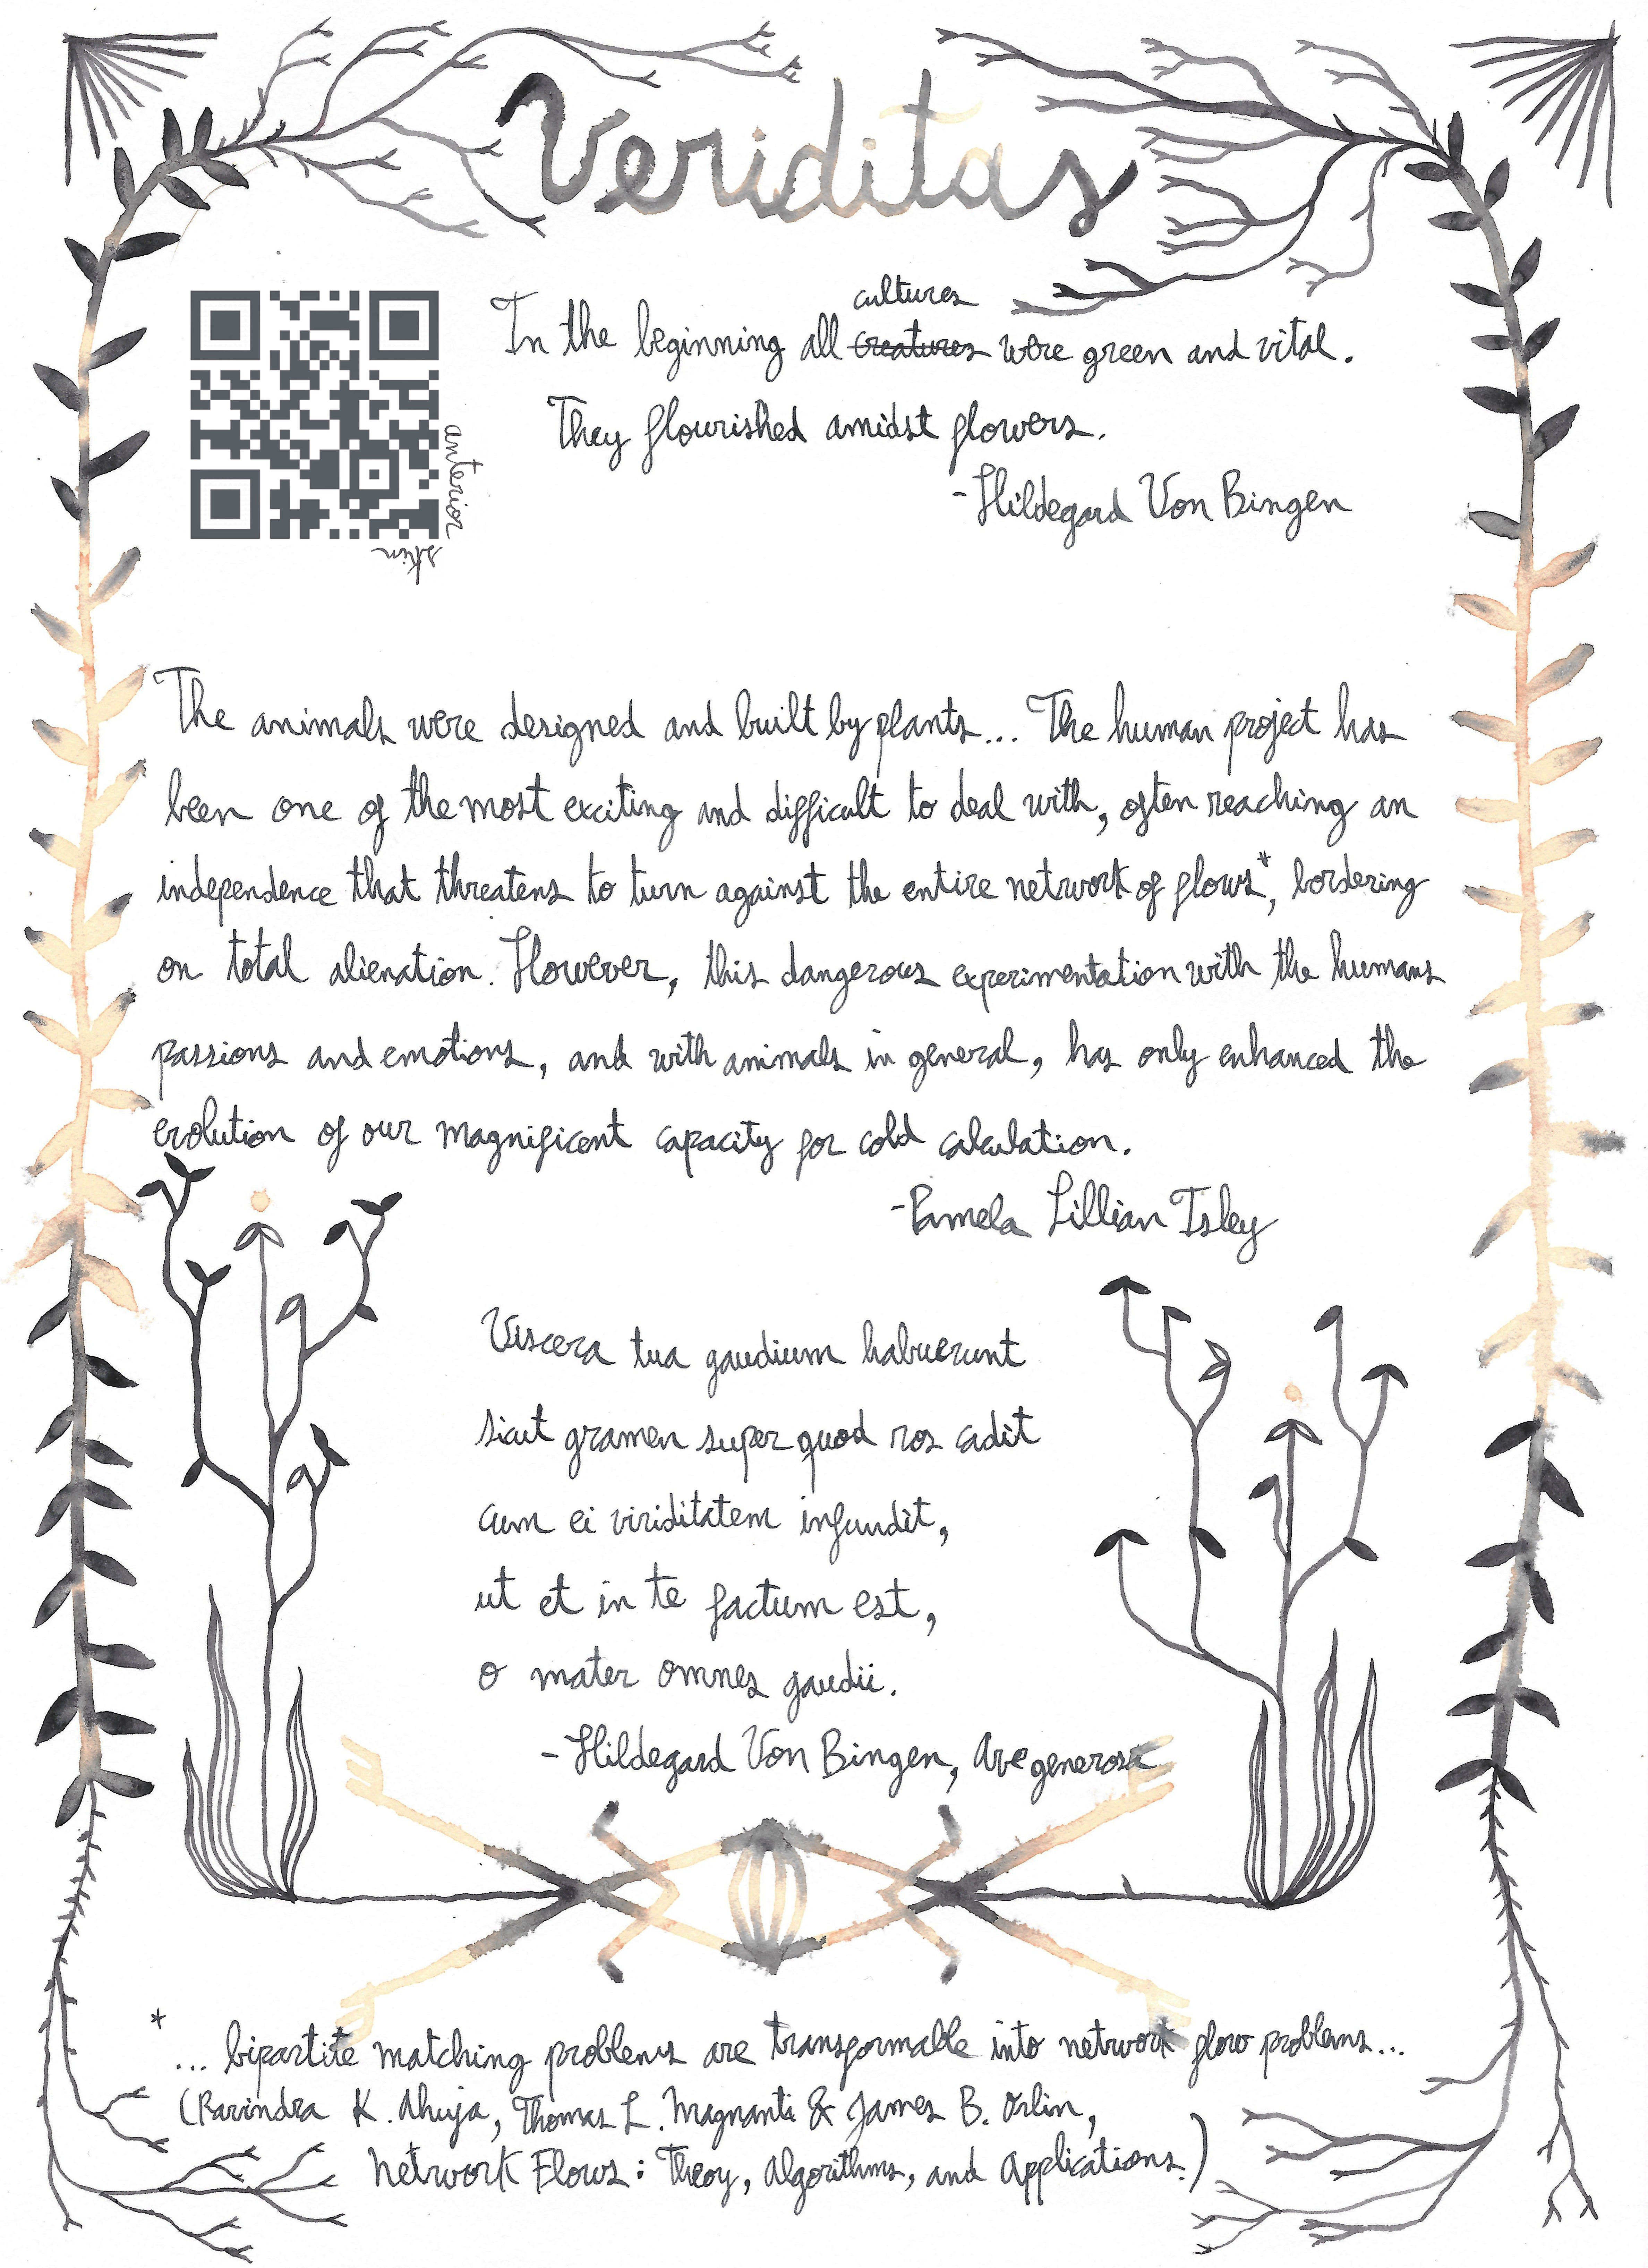 Veriditas
cultures
In the beginning all creatures were green and vital.
They flourished amidst flowers.
-Hildegard Von Bingen
anterior
skin
The animals were designed and built by plants... The human project has
been one of the most exciting and difficult to deal with, often reaching an
independence that threatens to turn against the entire network of flows*, bordering
on total alienation. However, this dangerous experimentation with the humans
passions and emotions, and with animals in general, has only enhanced the
evolution of our magnificent capacity for cold calculation.
-Pamela Lillian Isley
Viscera tua gaudium habuerunt
sicut gramen super quod ros cadit
cum ei viriditatem infundit,
ut et in te factum est,
o mater omnes gaudii.
-Hildegard Von Bingen, Ave generosa
* ... bipartite matching problems are transformable into network flow problems...
(Ravindra K. Ahuja, Thomas L. Magnanti & James B. Orlin,
Network Flows: Theoy, Algorithms, and Applications.)